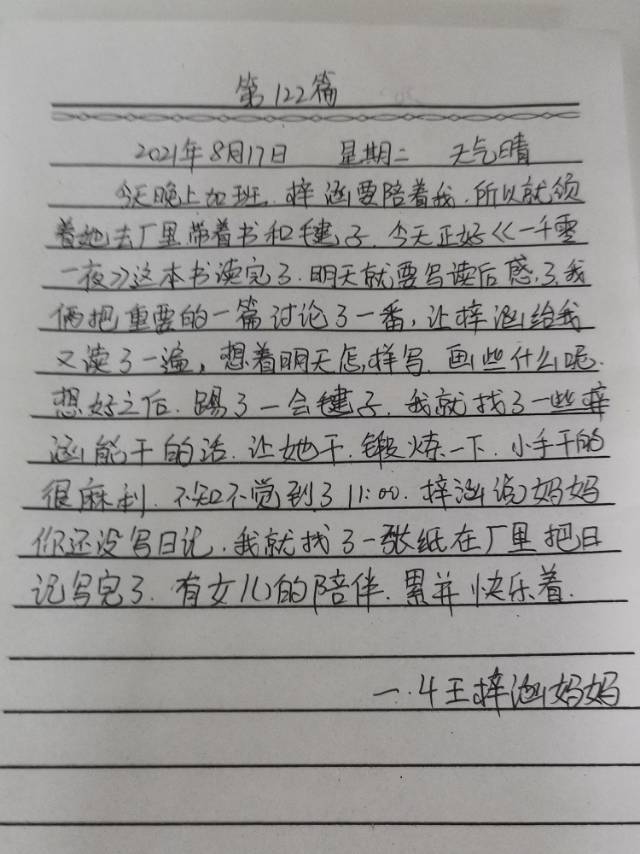 第122篇
2021年8月17日 星期二 天气晴
今天晚上加班.梓涵要陪着我.所以就领
着她去厂里带着书和毽子.今天正好《一千零
一夜》这本书读完了.明天就要写读后感了.我
俩把重要的一篇讨论了一番,让梓涵给我
又读了一遍,想着明天怎样写.画些什么呢.
想好之后.踢了一会毽子.我就找了一些梓
涵能干的活.让她干.锻炼一下.小手干的
很麻利.不知不觉到了11:00.梓涵说妈妈
你还没写日记.我就找了一张纸在厂里把日
记写完了.有女儿的陪伴.累并快乐着.
一.4王梓涵妈妈